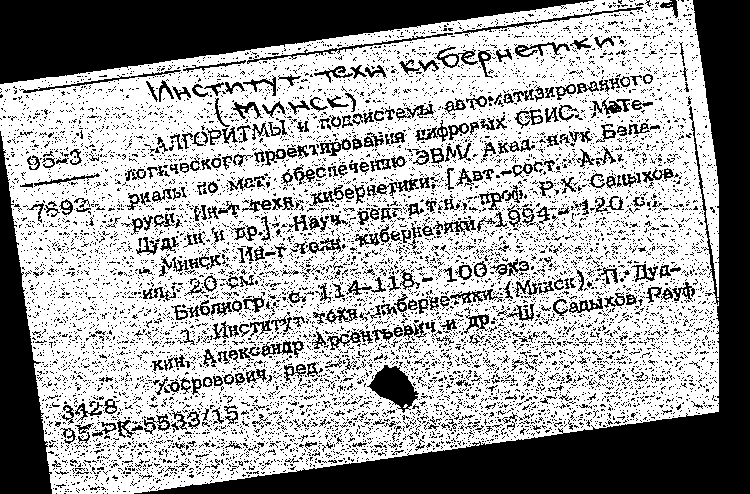 Институт техн. кибернетики
(Минск).
95-3
7892
АЛГОРИТМЫ и подсистемы автоматизированного
логического проектирования цифровых СБИС. Мате-
риалы по мат. обеспечению ЭВМ/ Акад. наук Бела-
руси, Ин-т техн. кибернетики; [Авт.-сост.: А.А.
Дудкин и др.]; Науч. ред. д.т.н., проф. Р.Х. Садыхов.
- Минск: Ин-т техн. кибернетики, 1994.- 120 с.:
ил.; 20 см.
Библиогр.: с. 114-118.- 100 экз.
1. Институт техн. кибернетики (Минск). П. Дуд-
кин, Александр Арсентьевич и др. Ш. Садыхов, Рауф
Хосровович, ред.
3428
95-РК-5533/15